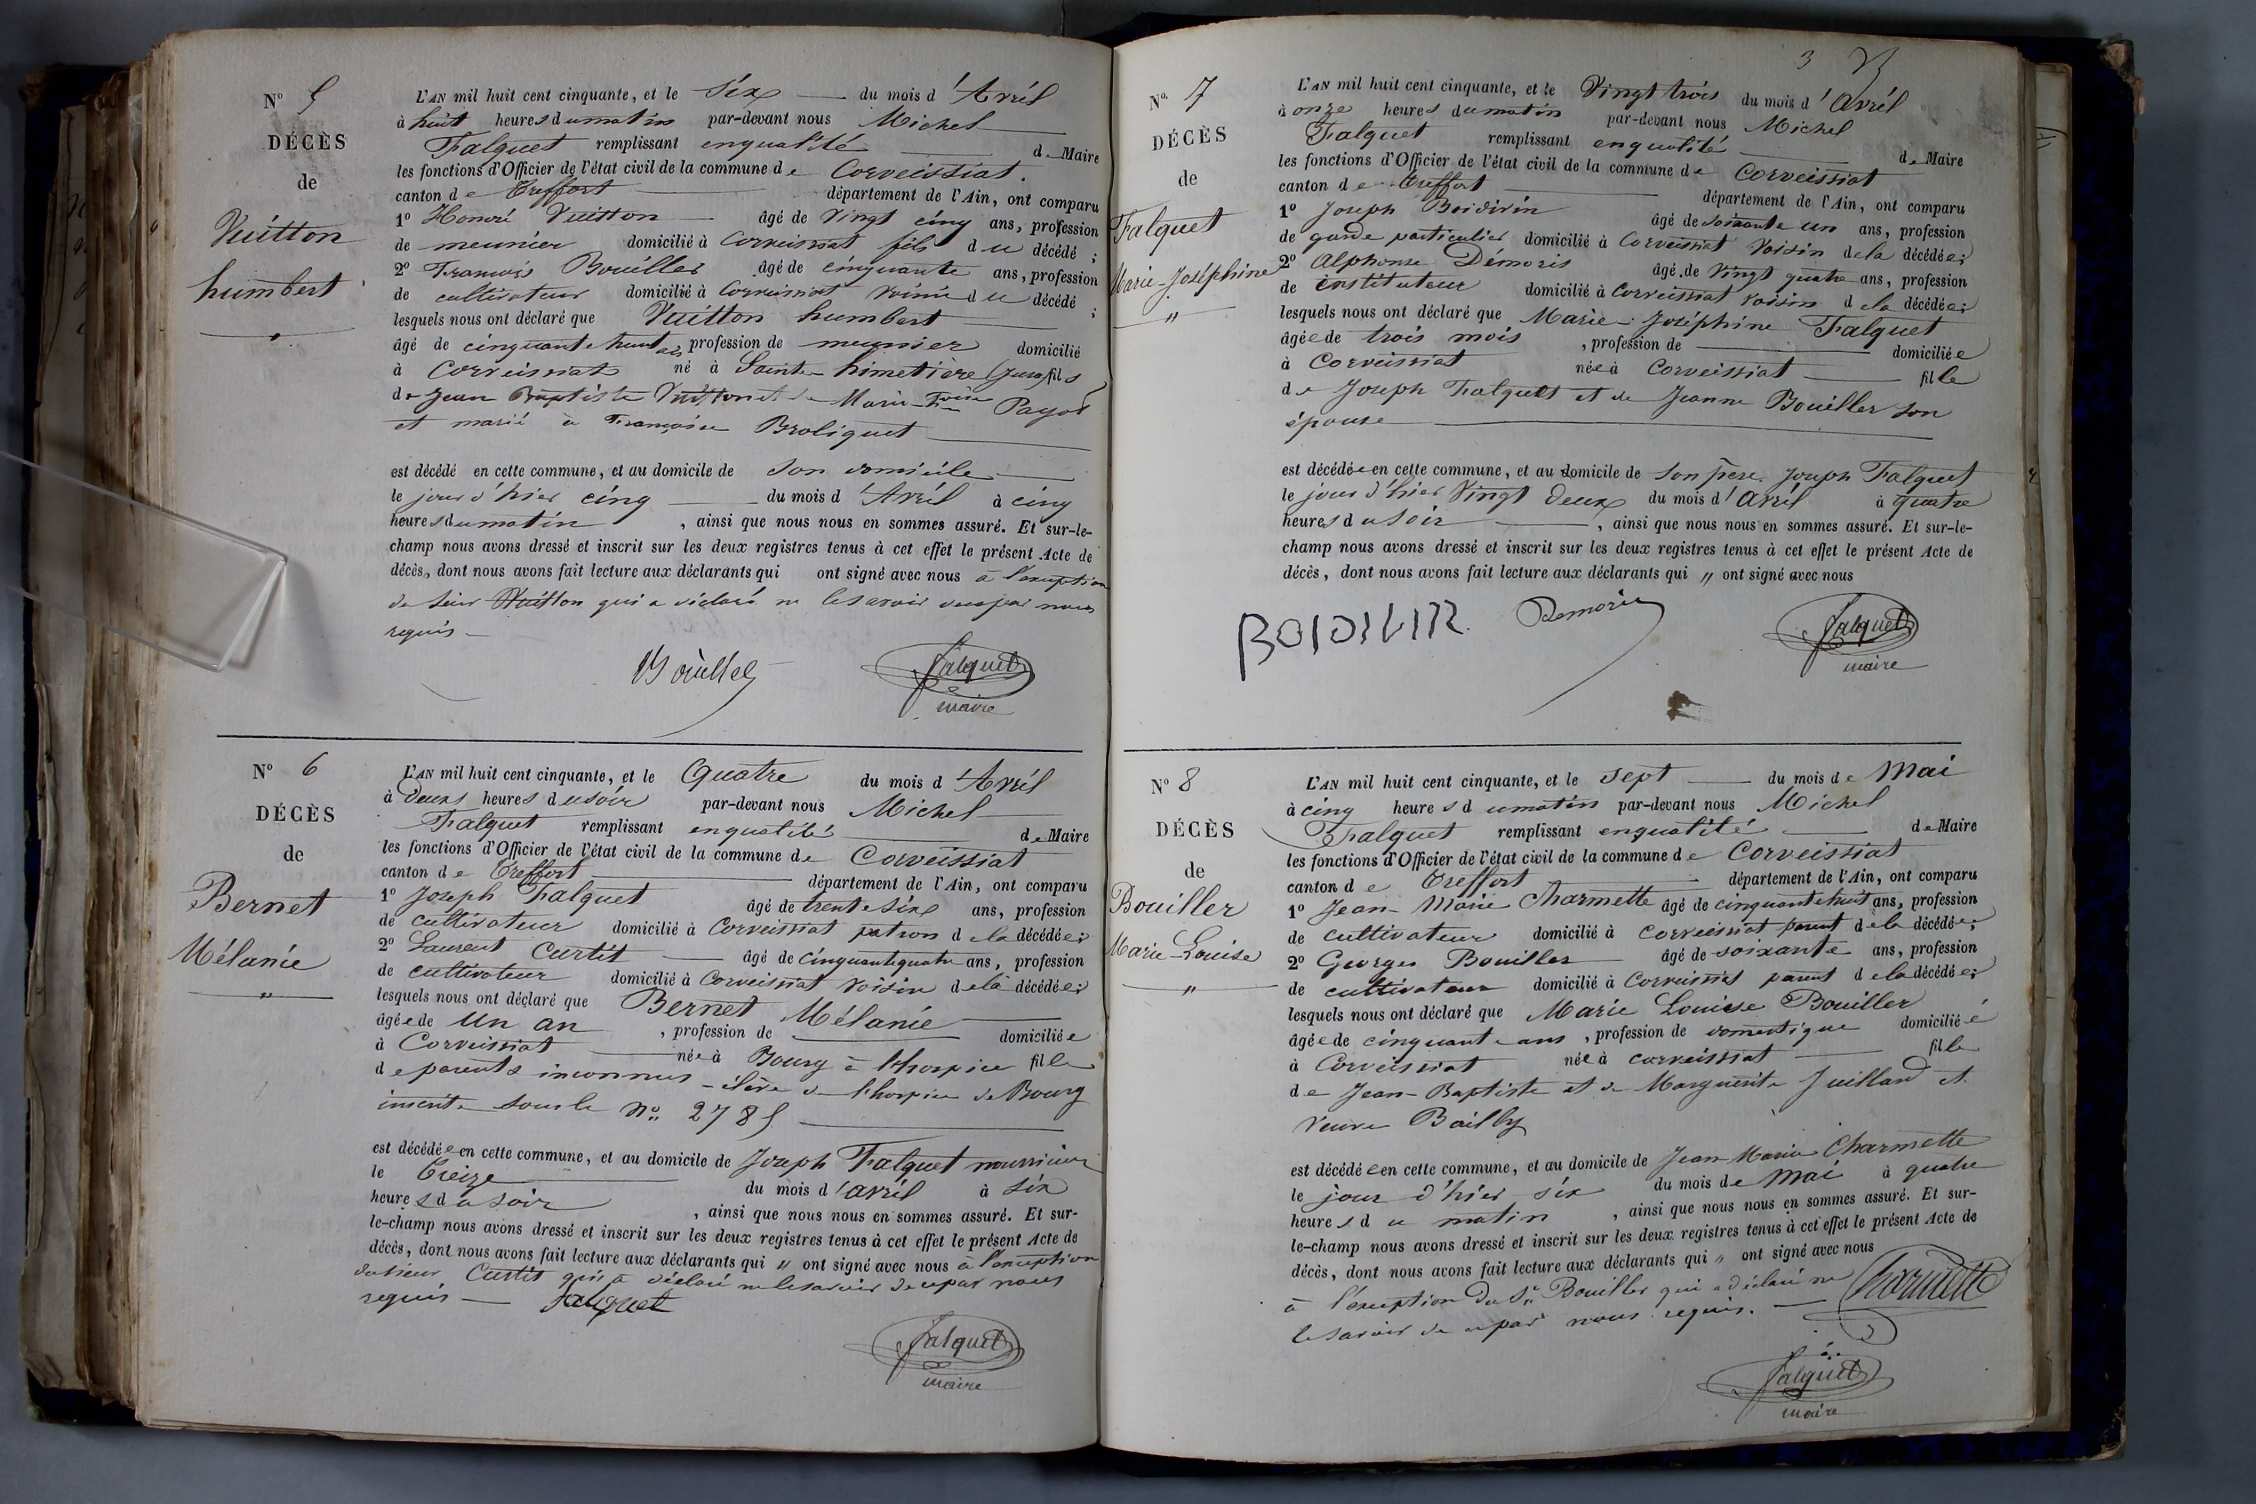 N° 5
DÉCÈS
de
Vuitton
humbert
L'AN mil huit cent cinquante, et le Six du mois d'Avril
à huit heures du matin par-devant nous Michel
Falquet remplissant en qualité de Maire
les fonctions d'Officier de l'état civil de la commune de Corveissiat
canton de Treffort département de l'Ain, ont comparu
1° Honoré Vuitton âgé de Vingt cinq ans, profession
de meunier domicilié à Corveissiat fils du décédé ;
2° François Bouiller âgé de cinquante ans, profession
de cultivateur domicilié à Corveissiat voisin du décédé ;
lesquels nous ont déclaré que Vuitton humbert
âgé de cinquante huit ans profession de meunier domicilié
à Corveissiat né à Sainte himetière (Jura) fils
de Jean Baptiste Vuitton et de Marie Payod
et marié à Françoise Broliquet
est décédé en cette commune, et au domicile de son domicile
le jour d'hier cinq du mois d'Avril à cinq
heures du matin, ainsi que nous nous en sommes assuré. Et sur-le-
champ nous avons dressé et inscrit sur les deux registres tenus à cet effet le présent Acte de
décès, dont nous avons fait lecture aux déclarants qui ont signé avec nous à l'exception
de Sieur Vuitton qui a déclaré ne le savoir de ce par nous
requis
Bouiller Falquet
maire
N° 6
DÉCÈS
de
Bernet
Mélanie
"
L'AN mil huit cent cinquante, et le Quatre du mois d'Avril
à deux heures du soir par-devant nous Michel
Falquet remplissant en qualité de Maire
les fonctions d'Officier de l'état civil de la commune de Corveissiat
canton de Treffort département de l'Ain, ont comparu
1° Joseph Falquet âgé de trente Six ans, profession
de cultivateur domicilié à Corveissiat patron de la décédée ;
2° Laurent Curtit âgé de cinquante quatre ans, profession
de cultivateur domicilié à Corveissiat voisin de la décédée ;
lesquels nous ont déclaré que Bernet Mélanie
âgée de Un an, profession de domiciliée
à Corveissiat née à Bourg à l'hospice fille
de parents inconnus - élève de l'hospice de Bourg
inscrite sous le N° 2785
est décédée en cette commune, et au domicile de Joseph Falquet nourricier
le Treize du mois d'avril à six
heures du soir, ainsi que nous nous en sommes assuré. Et sur-
le-champ nous avons dressé et inscrit sur les deux registres tenus à cet effet le présent Acte de
décès, dont nous avons fait lecture aux déclarants qui " ont signé avec nous à l'exception
du sieur Curtit qui a déclaré ne le savoir de ce par nous
requis Falquet
Falquet
maire
3
N° 7
DÉCÈS
de
Falquet
Marie-Joséphine
"
L'AN mil huit cent cinquante, et le Vingt trois du mois d'avril
à onze heures du matin par-devant nous Michel
Falquet remplissant en qualité de Maire
les fonctions d'Officier de l'état civil de la commune de Corveissiat
canton de Treffort département de l'Ain, ont comparu
1° Joseph Boidivin âgé de soixante un ans, profession
de garde particulier domicilié à Corveissiat Voisin de la décédée ;
2° Alphonse Demoris âgé de Vingt quatre ans, profession
de instituteur domicilié à Corveissiat voisin de la décédée ;
lesquels nous ont déclaré que Marie-Joséphine Falquet
âgée de trois mois, profession de domiciliée
à Corveissiat née à Corveissiat fille
de Joseph Falquet et de Jeanne Bouiller son
épouse
est décédée en cette commune, et au domicile de son père Joseph Falquet
le jour d'hier Vingt Deux du mois d'avril à quatre
heures du soir, ainsi que nous nous en sommes assuré. Et sur-le-
champ nous avons dressé et inscrit sur les deux registres tenus à cet effet le présent Acte de
décès, dont nous avons fait lecture aux déclarants qui " ont signé avec nous
BOIDIVIN Demoris Falquet
maire
N° 8
DÉCÈS
de
Bouiller
Marie-Louise
"
L'AN mil huit cent cinquante, et le Sept du mois de Mai
à cinq heures du matin par-devant nous Michel
Falquet remplissant en qualité de Maire
les fonctions d'Officier de l'état civil de la commune de Corveissiat
canton de Treffort département de l'Ain, ont comparu
1° Jean-Marie Charmette âgé de cinquante huit ans, profession
de cultivateur domicilié à Corveissiat parent de la décédée ;
2° Georges Bouiller âgé de soixante ans, profession
de cultivateur domicilié à Corveissiat parent de la décédée ;
lesquels nous ont déclaré que Marie Louise Bouiller
âgée de cinquante ans, profession de domestique domiciliée
à Corveissiat née à Corveissiat fille
de Jean-Baptiste et de Marguerite Juillard et
veuve Bailly
est décédée en cette commune, et au domicile de Jean-Marie Charmette
le jour d'hier six du mois de Mai à quatre
heures du matin, ainsi que nous nous en sommes assuré. Et sur-
le-champ nous avons dressé et inscrit sur les deux registres tenus à cet effet le présent Acte de
décès, dont nous avons fait lecture aux déclarants qui " ont signé avec nous
à l'exception du Sr Bouiller qui a déclaré ne
le savoir de ce par nous requis. Charmette
Falquet
maire